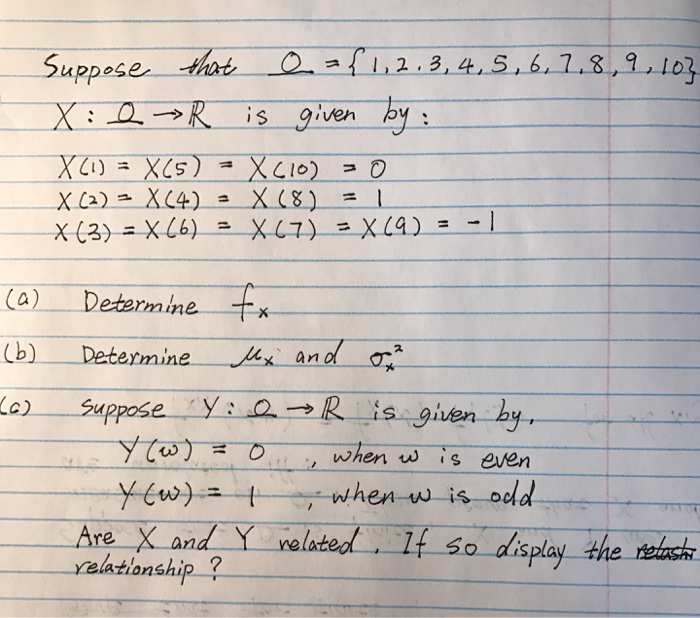 Suppose that Ω = {1, 2. 3, 4, 5, 6, 7, 8, 9, 10}
X : Ω → R is given by :
X(1) = X(5) = X(10) = 0
X(2) = X(4) = X(8) = 1
X(3) = X(6) = X(7) = X(9) = -1
(a) Determine fx
(b) Determine μx and σx²
(c) Suppose Y : Ω → R is given by,
Y(w) = 0 , when w is even
Y(w) = 1 , when w is odd
Are X and Y related. If so display the
relationship ?